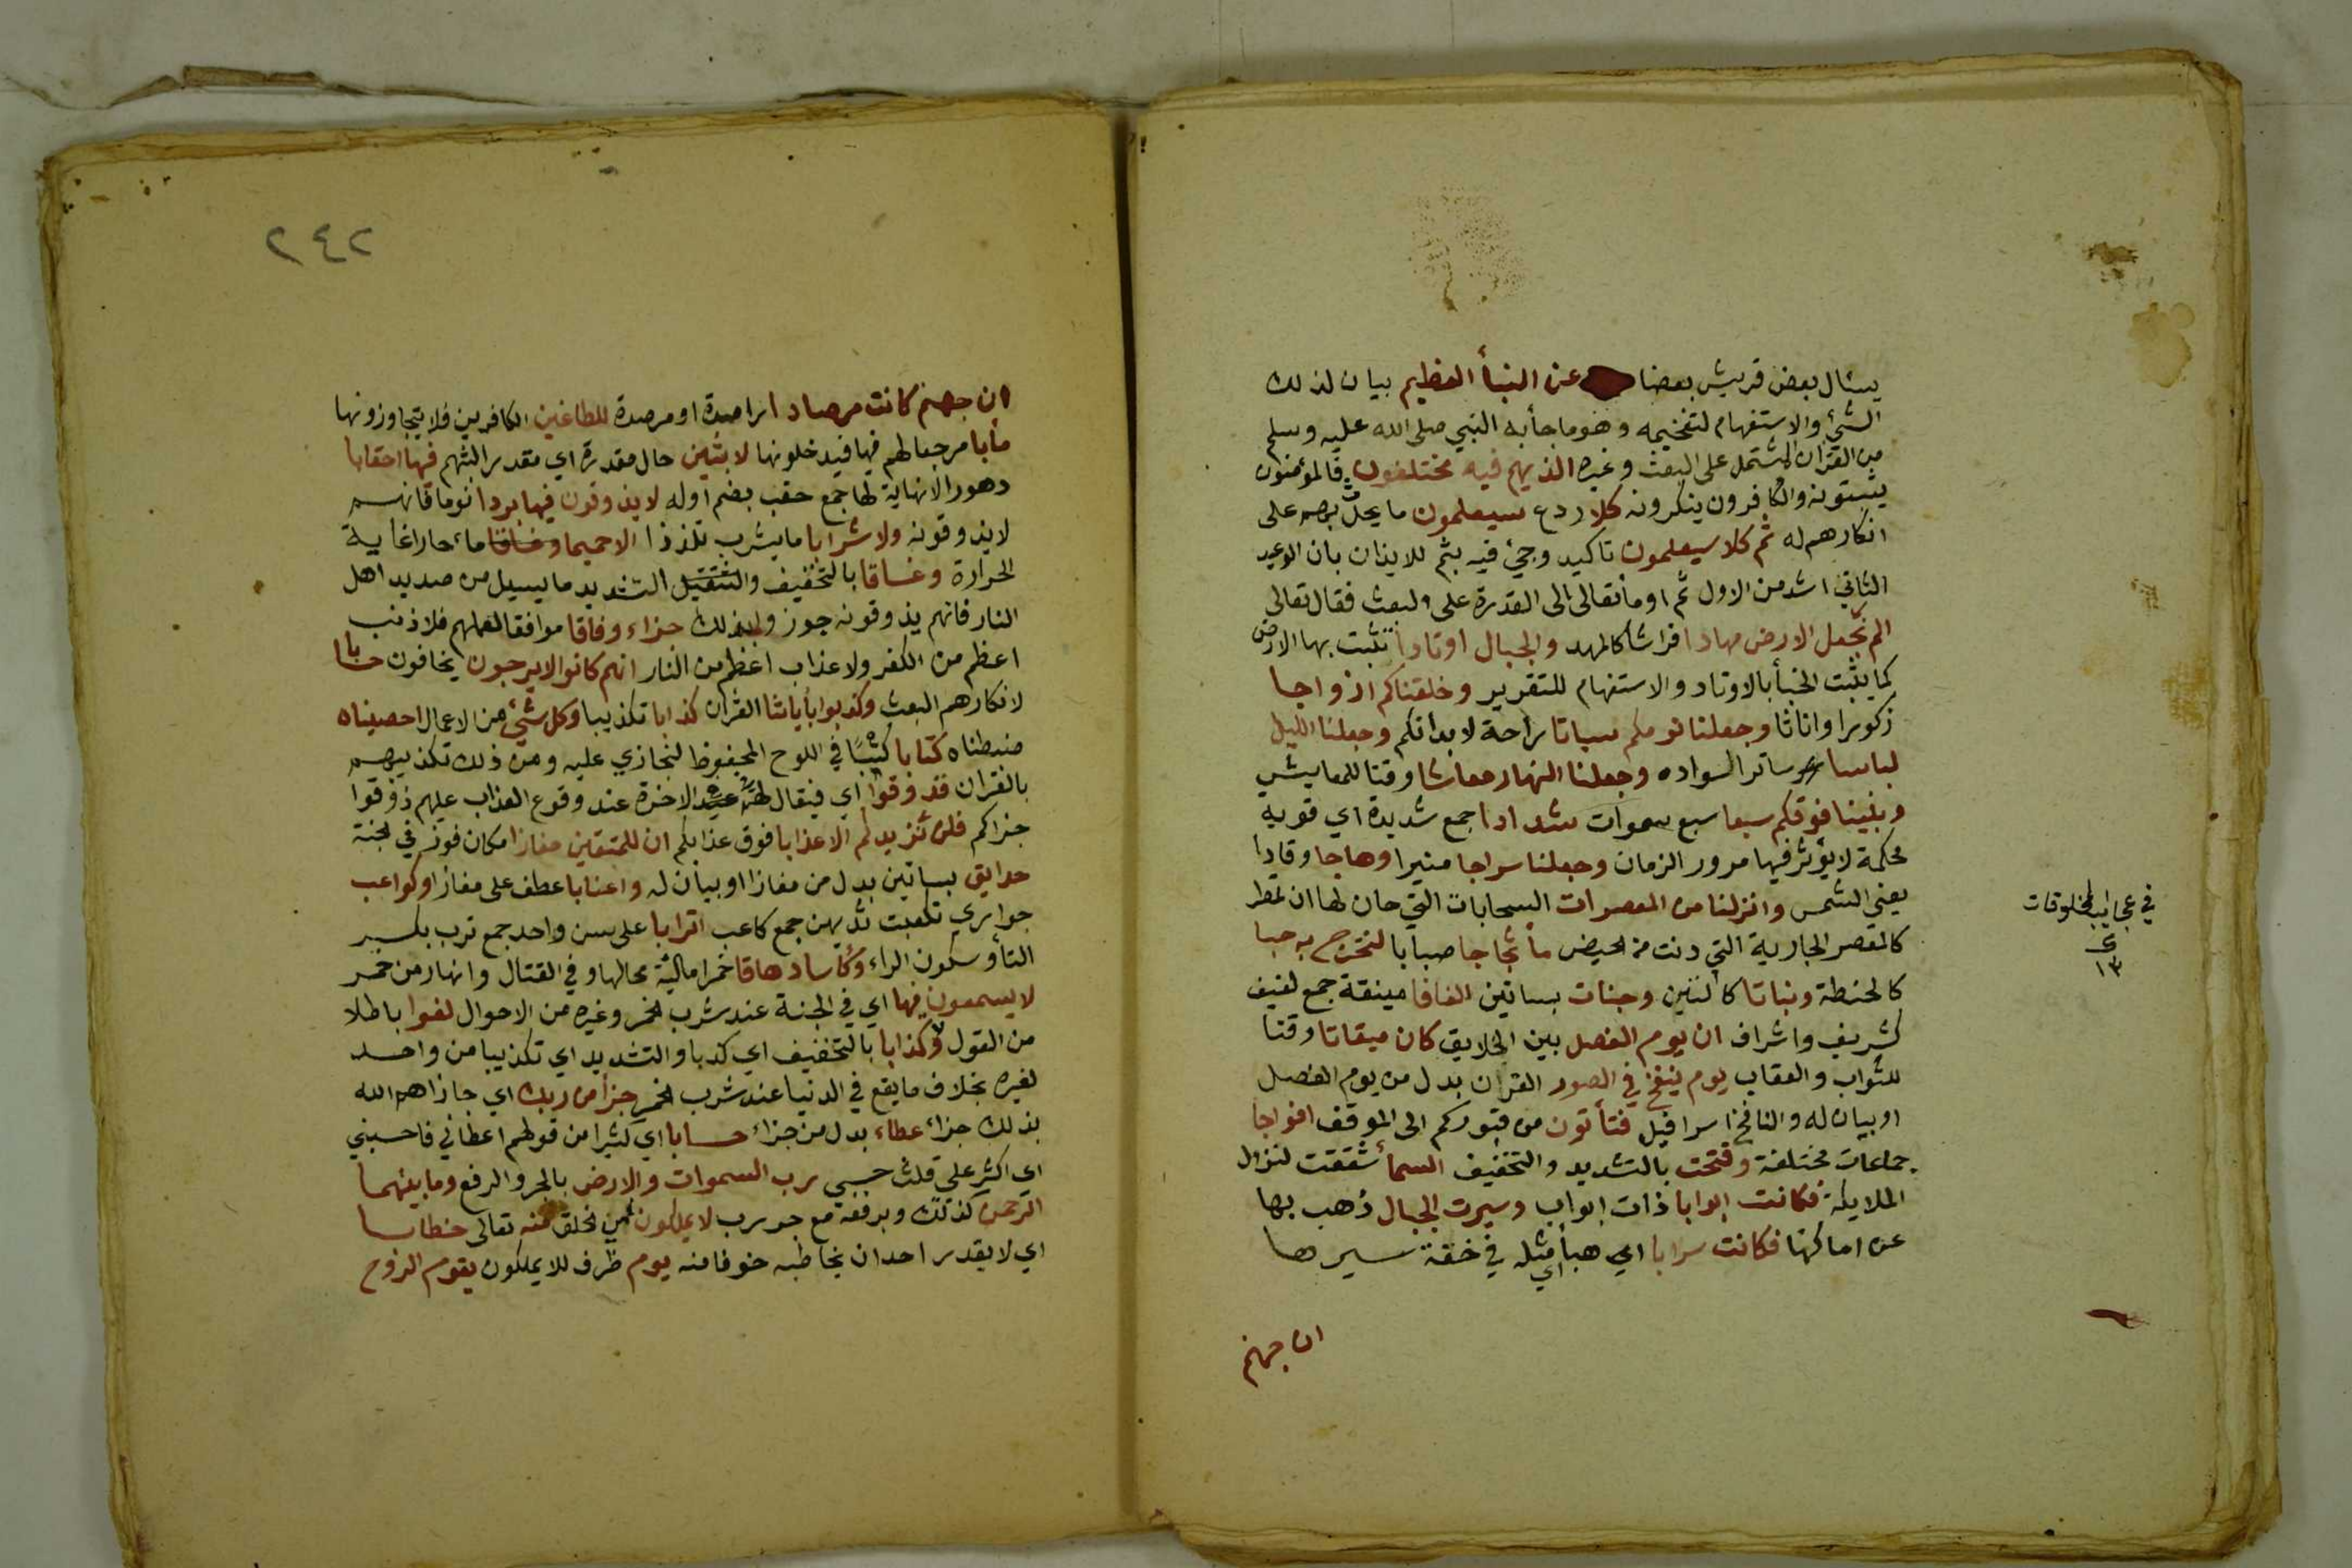 يسئال بعض قريش بعضا عن النبأ العظيم بيان لذلك
الشئ والاستفهام لتفخيمه وهو ما جأ به النبي صلى الله عليه وسلم
من القرٱن المشتمل على البعث وغيره الذيهم فيه مختلفون فالمؤمنون
يثبتونه والكافرون ينكرونه كلا ردع سيعلمون ما يحل بهم على
انكارهم له ثم كلا سيعلمون تاكيد وجئ فيه بثم للايذان بان الوعيد
الثاني اشد من الاول ثم اومأ تعالى الى القدرة على البعث فقال تعالى
الم نجعل الارض مهادا فراشا كالمهد والجبال اوتادا تثبت بها الارض
كما يثبت الخبأ بالاوتاد والاستفهام للتقرير وخلقناكم ازواجا
ذكورا واناثا وجعلنا نومكم سباتا راحة لابدانكم وجعلنا الليل
لباسا ساتر السواده وجعلنا النهار معاشا وقتا للمعايش
وبنينا فوقكم سبعا سبع سموات شدادا جمع شديدة اي قوية
محكمة لا يؤثر فيها مرور الزمان وجعلنا سراجا منيرا وهاجا وقادا
يعني الشمس وانزلنا من المعصرات السحابات التي حان لها ان تمطر
كالمعصر الجارية التي دنت من الحيض مأ ثجاجا صبابا لنخرج به حبا
كالحنطة ونباتا كالتين وجنات بساتين الفافا جمع لفيف
كشريف واشراف ان يوم الفصل بين الخلايق كان ميقاتا وقتا
للثواب والعقاب يوم ينفخ في الصور القرن بدل من يوم الفصل
او بيان له والنافخ اسرافيل فتأتون من قبوركم الى الموقف افواجا
جماعات مختلفة وفتحت بالتشديد والتخفيف السمأ شققت لنزول
الملايكة فكانت ابوابا ذات ابواب وسيرت الجبال ذهب بها
عن اماكنها فكانت سرابا اي هبأ اي مثله في خفة سيرها
ان جهنم
في عجايب المخلوقات
١٣
٢٤٢
ان جهنم كانت مرصادا راصدة او مرصدة للطاغين الكافرين فلا يتجاوزونها
مأبا مرجعا لهم فيها فيدخلونها لابثين حال مقدرة اي مقدر البثهم فيها احقابا
دهورا لانهاية لها جمع حقب بضم اوله لا يذوقون فيها بردا نوما فانهم
لا يذوقونه ولا شرابا ما يشرب تلذذا الا حميما وغساقا ماء حارا غاية
الحرارة وغساقا بالتخفيف والتثقيل التشديد ما يسيل من صديد اهل
النار فانهم يذوقونه جوزوا بذلك جزاء وفاقا موافقا لعملهم فلا ذنب
اعظم من الكفر ولا عذاب اعظم من النار انهم كانوا لا يرجون يخافون حسابا
لانكارهم البعث وكذبوا بأياتنا القرٱن كذابا تكذيبا وكل شئ من الاعمال احصيناه
ضبطناه كتابا كتبا في اللوح المحفوظ لنجازي عليه ومن ذلك تكذيبهم
بالقرٱن فذوقوا اي فيقال لهم في الاخرة عند وقوع العذاب عليهم ذوقوا
جزاكم فلن نزيدكم الا عذابا فوق عذابكم ان للمتقين مفازا مكان فوز في الجنة
حدايق بساتين بدل من مفازا او بيان له واعنابا عطف على مفازا وكواعب
جواري تكعبت ثديهن جمع كاعب اترابا على سن واحد جمع ترب بكسر
التأ وسكون الراء وكأسا دهاقا خمرا مالئة محالها وفي القتال وانهار من خمر
لا يسمعون فيها اي في الجنة عند شرب الخمر وغيره من الاحوال لغوا باطلا
من القول ولا كذابا بالتخفيف اي كذبا والتشديد اي تكذيبا من واحد
لغيره بخلاف ما يقع في الدنيا عند شرب الخمر جزأ من ربك اي جازاهم الله
بذلك جزاء عطاء بدل من جزاء حسابا اي كثيرا من قولهم اعطاني فاحسبني
اي اكثر علي قلت حسبي رب السموات والارض بالجر والرفع وما بينهما
الرحمن كذلك وبرفعه مع جر رب لا يملكون منه تعالى خطابا
اي لا يقدر احد ان يخاطبه خوفا منه يوم ظرف للا يملكون يقوم الروح